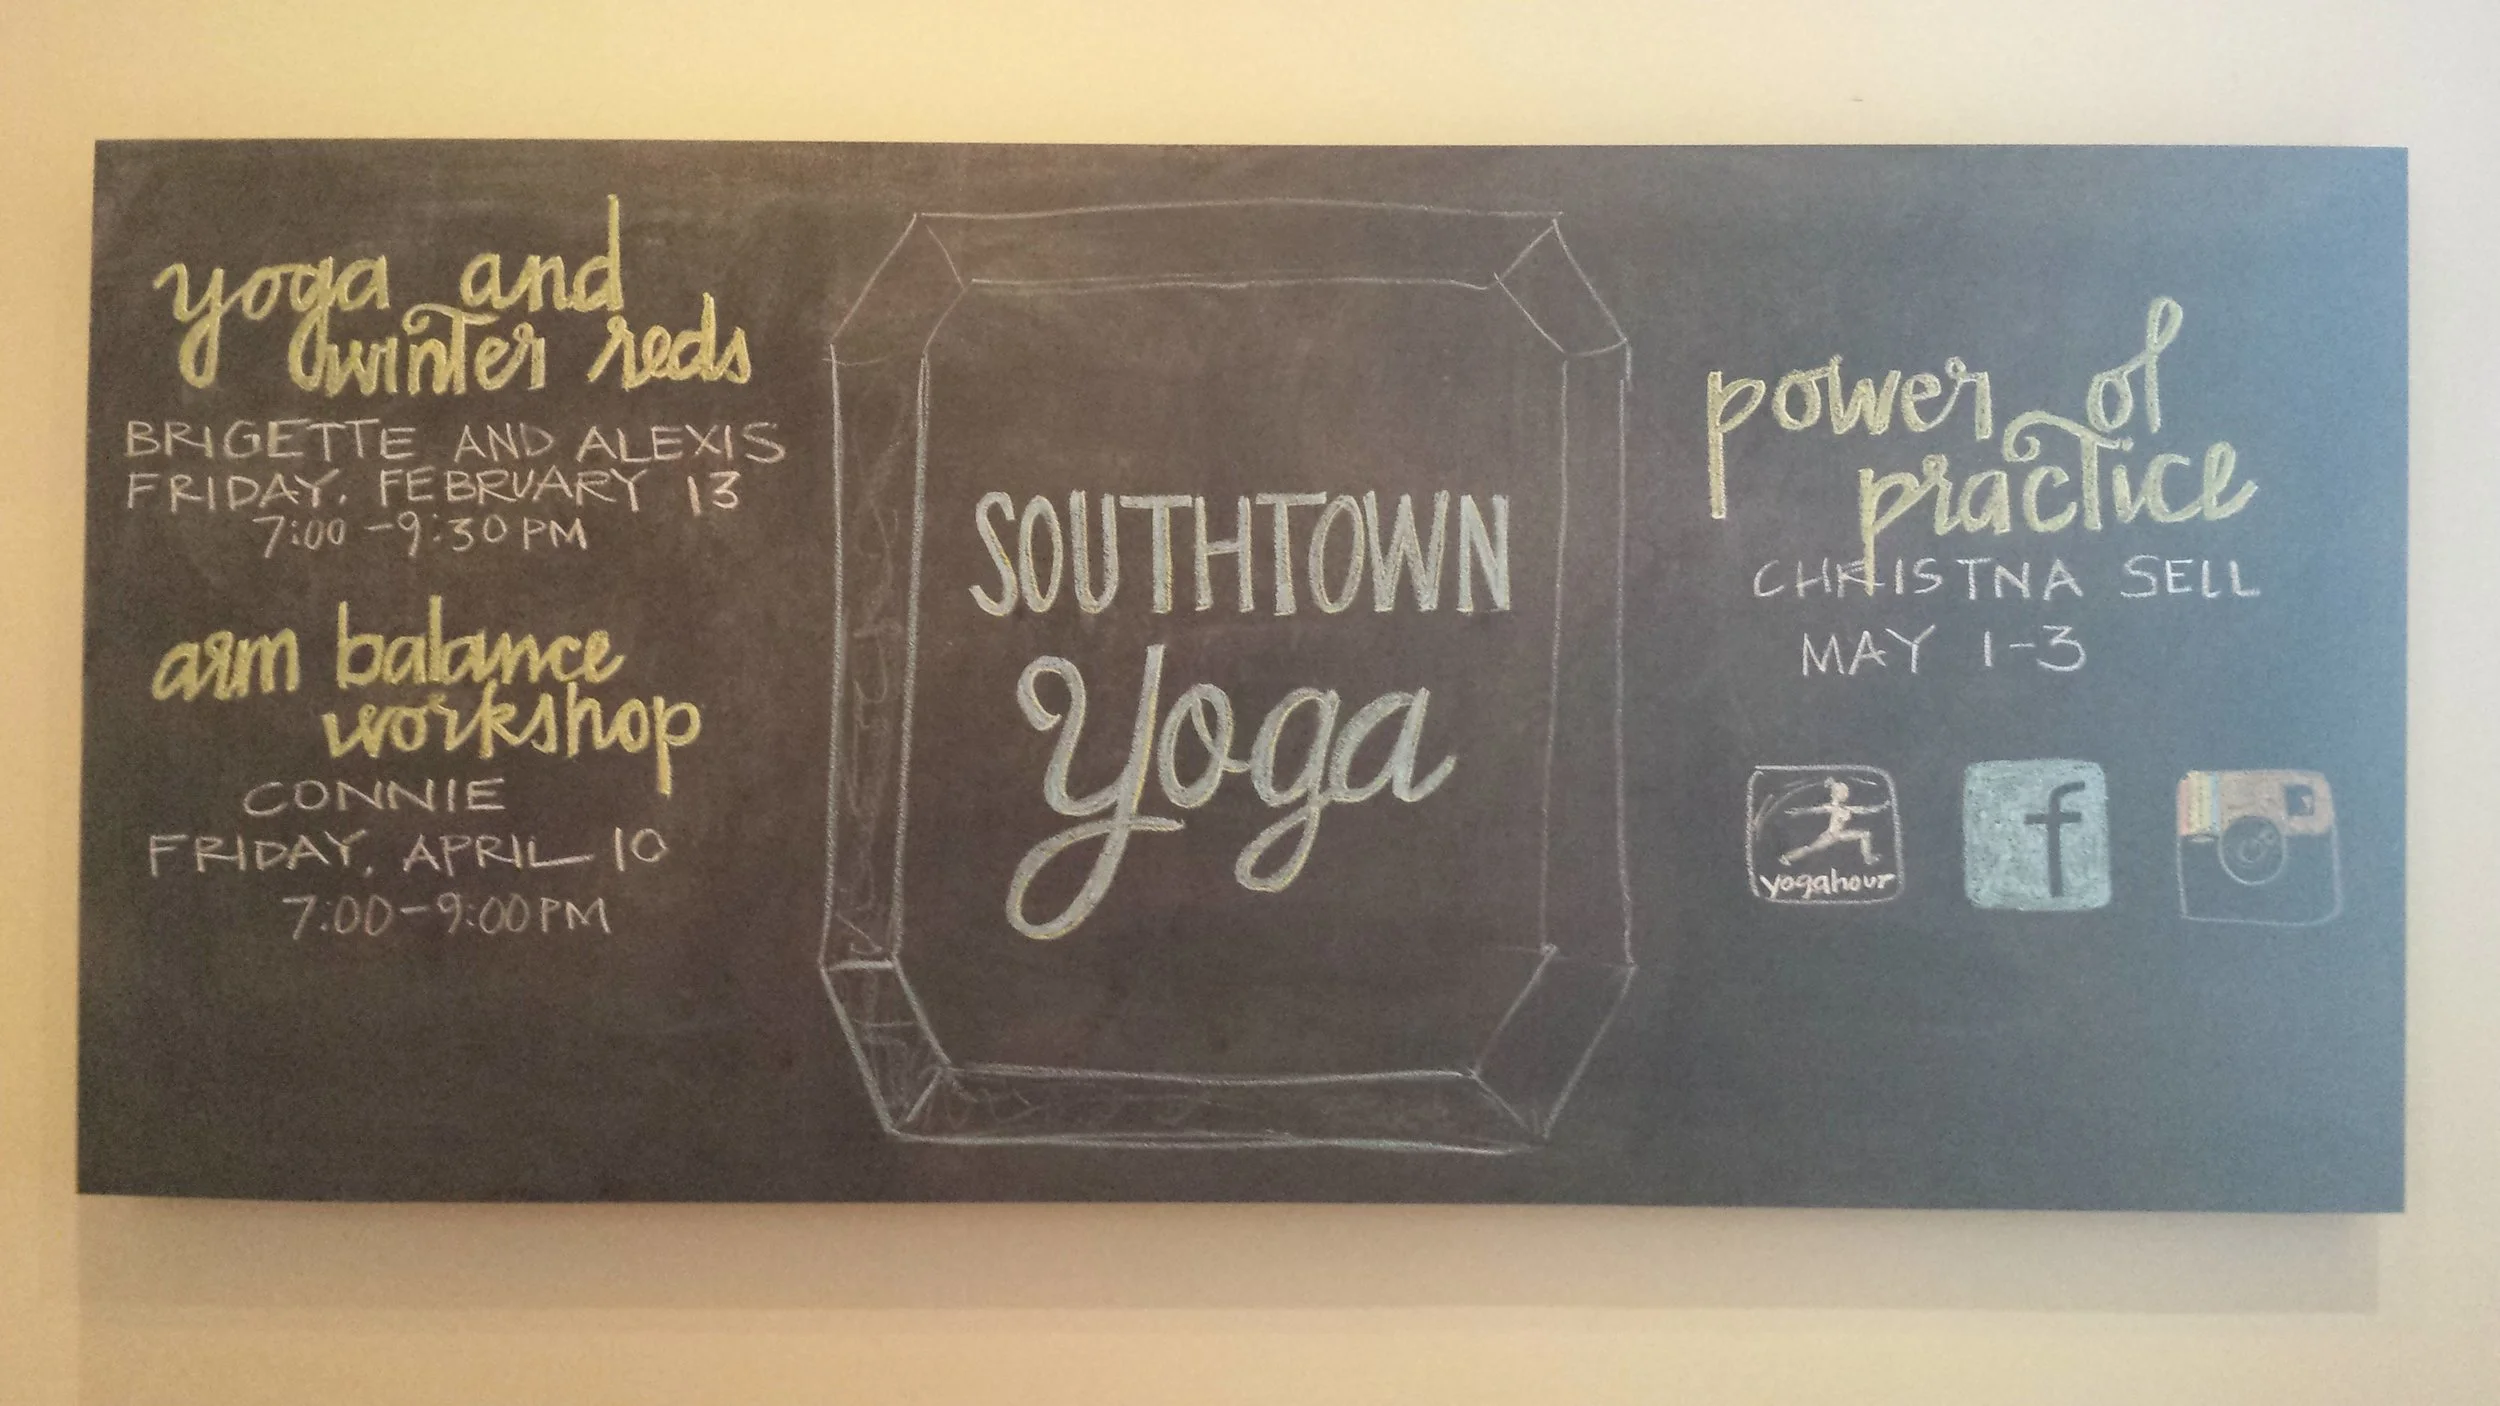 yoga and
winter reds
BRIGETTE AND ALEXIS
FRIDAY, FEBRUARY 13
7:00-9:30PM
arm balance
workshop
CONNIE
FRIDAY, APRIL 10
7:00-9:00PM
SOUTHTOWN
Yoga
power of
practice
CHRISTNA SELL
MAY 1-3
yogahour
f